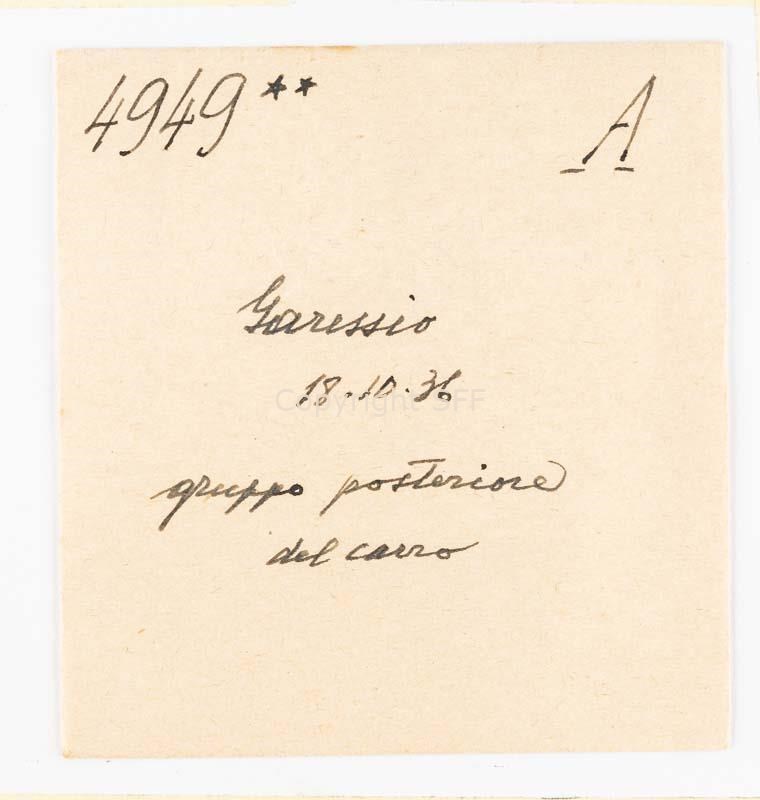 4949** A
Garessio
18.10.36
Copyright SFF
gruppo posteriore
del carro